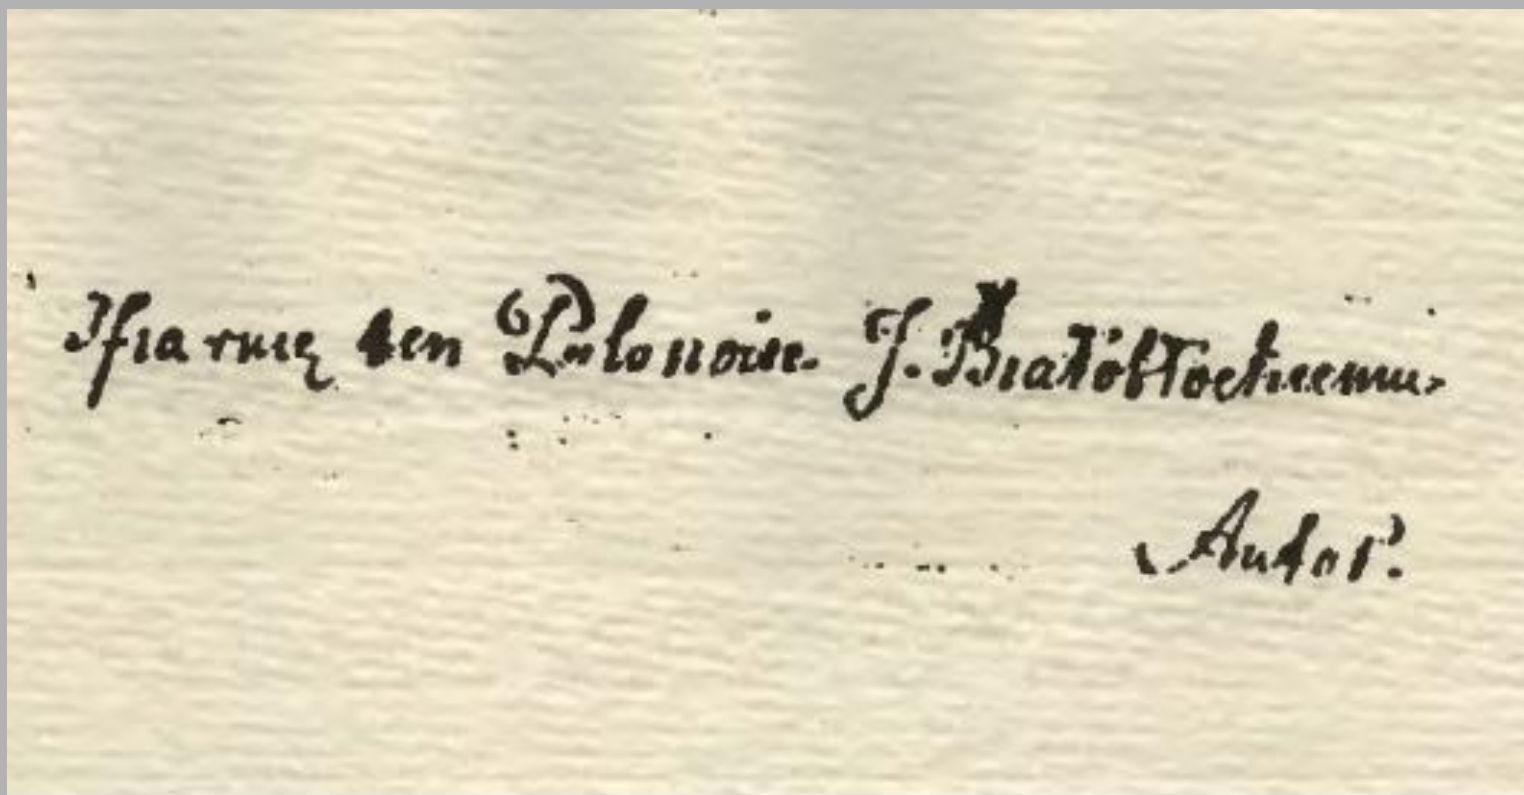 Ofiaruię ten Polonoise J. Białobłockiemu.
Autor.